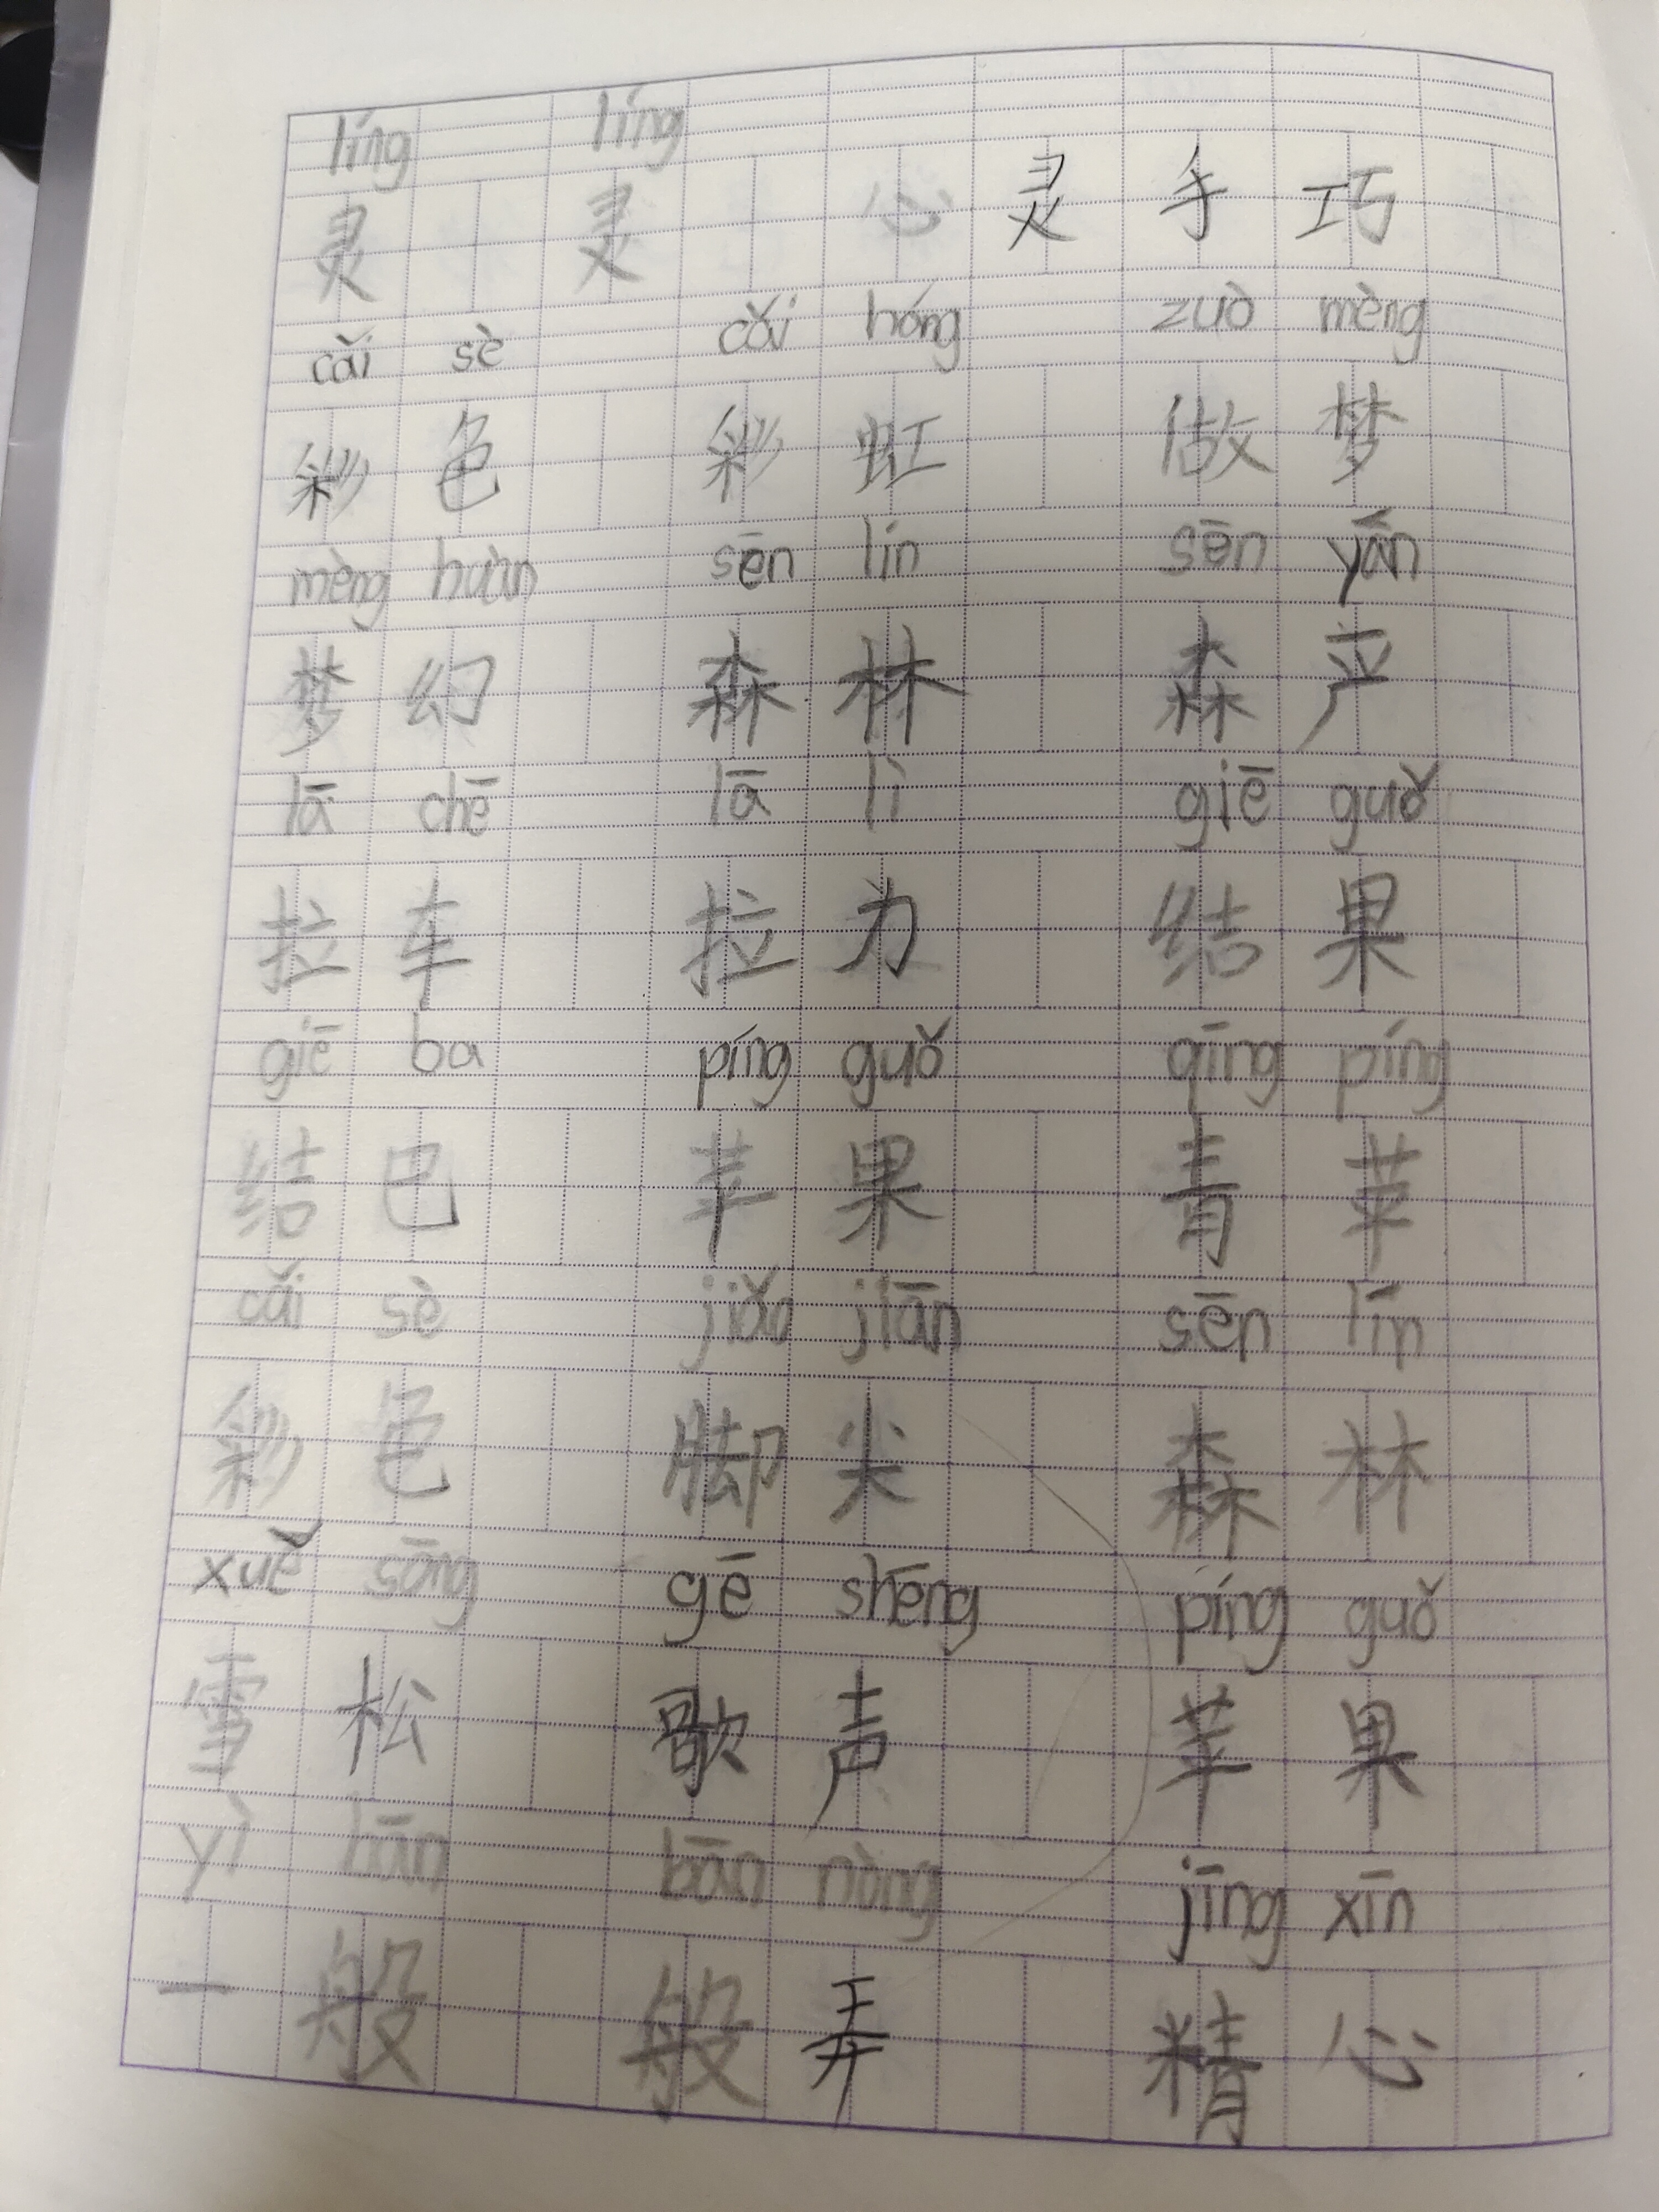 líng líng
灵 灵 心 灵 手 巧
cǎi sè cǎi hóng zuò mèng
彩 色 彩 虹 做 梦
mèng huàn sēn lín sēn yán
梦 幻 森 林 森 严
lā chē lā lì giē guǒ
拉 车 拉 力 结 果
giē ba píng guǒ qīng píng
结 巴 苹 果 青 苹
cǎi sè jiǎo jiān sēn lín
彩 色 脚 尖 森 林
xuě sōng gē shēng píng guǒ
雪 松 歌 声 苹 果
yì bān bān nòng jīng xīn
一 般 般 弄 精 心